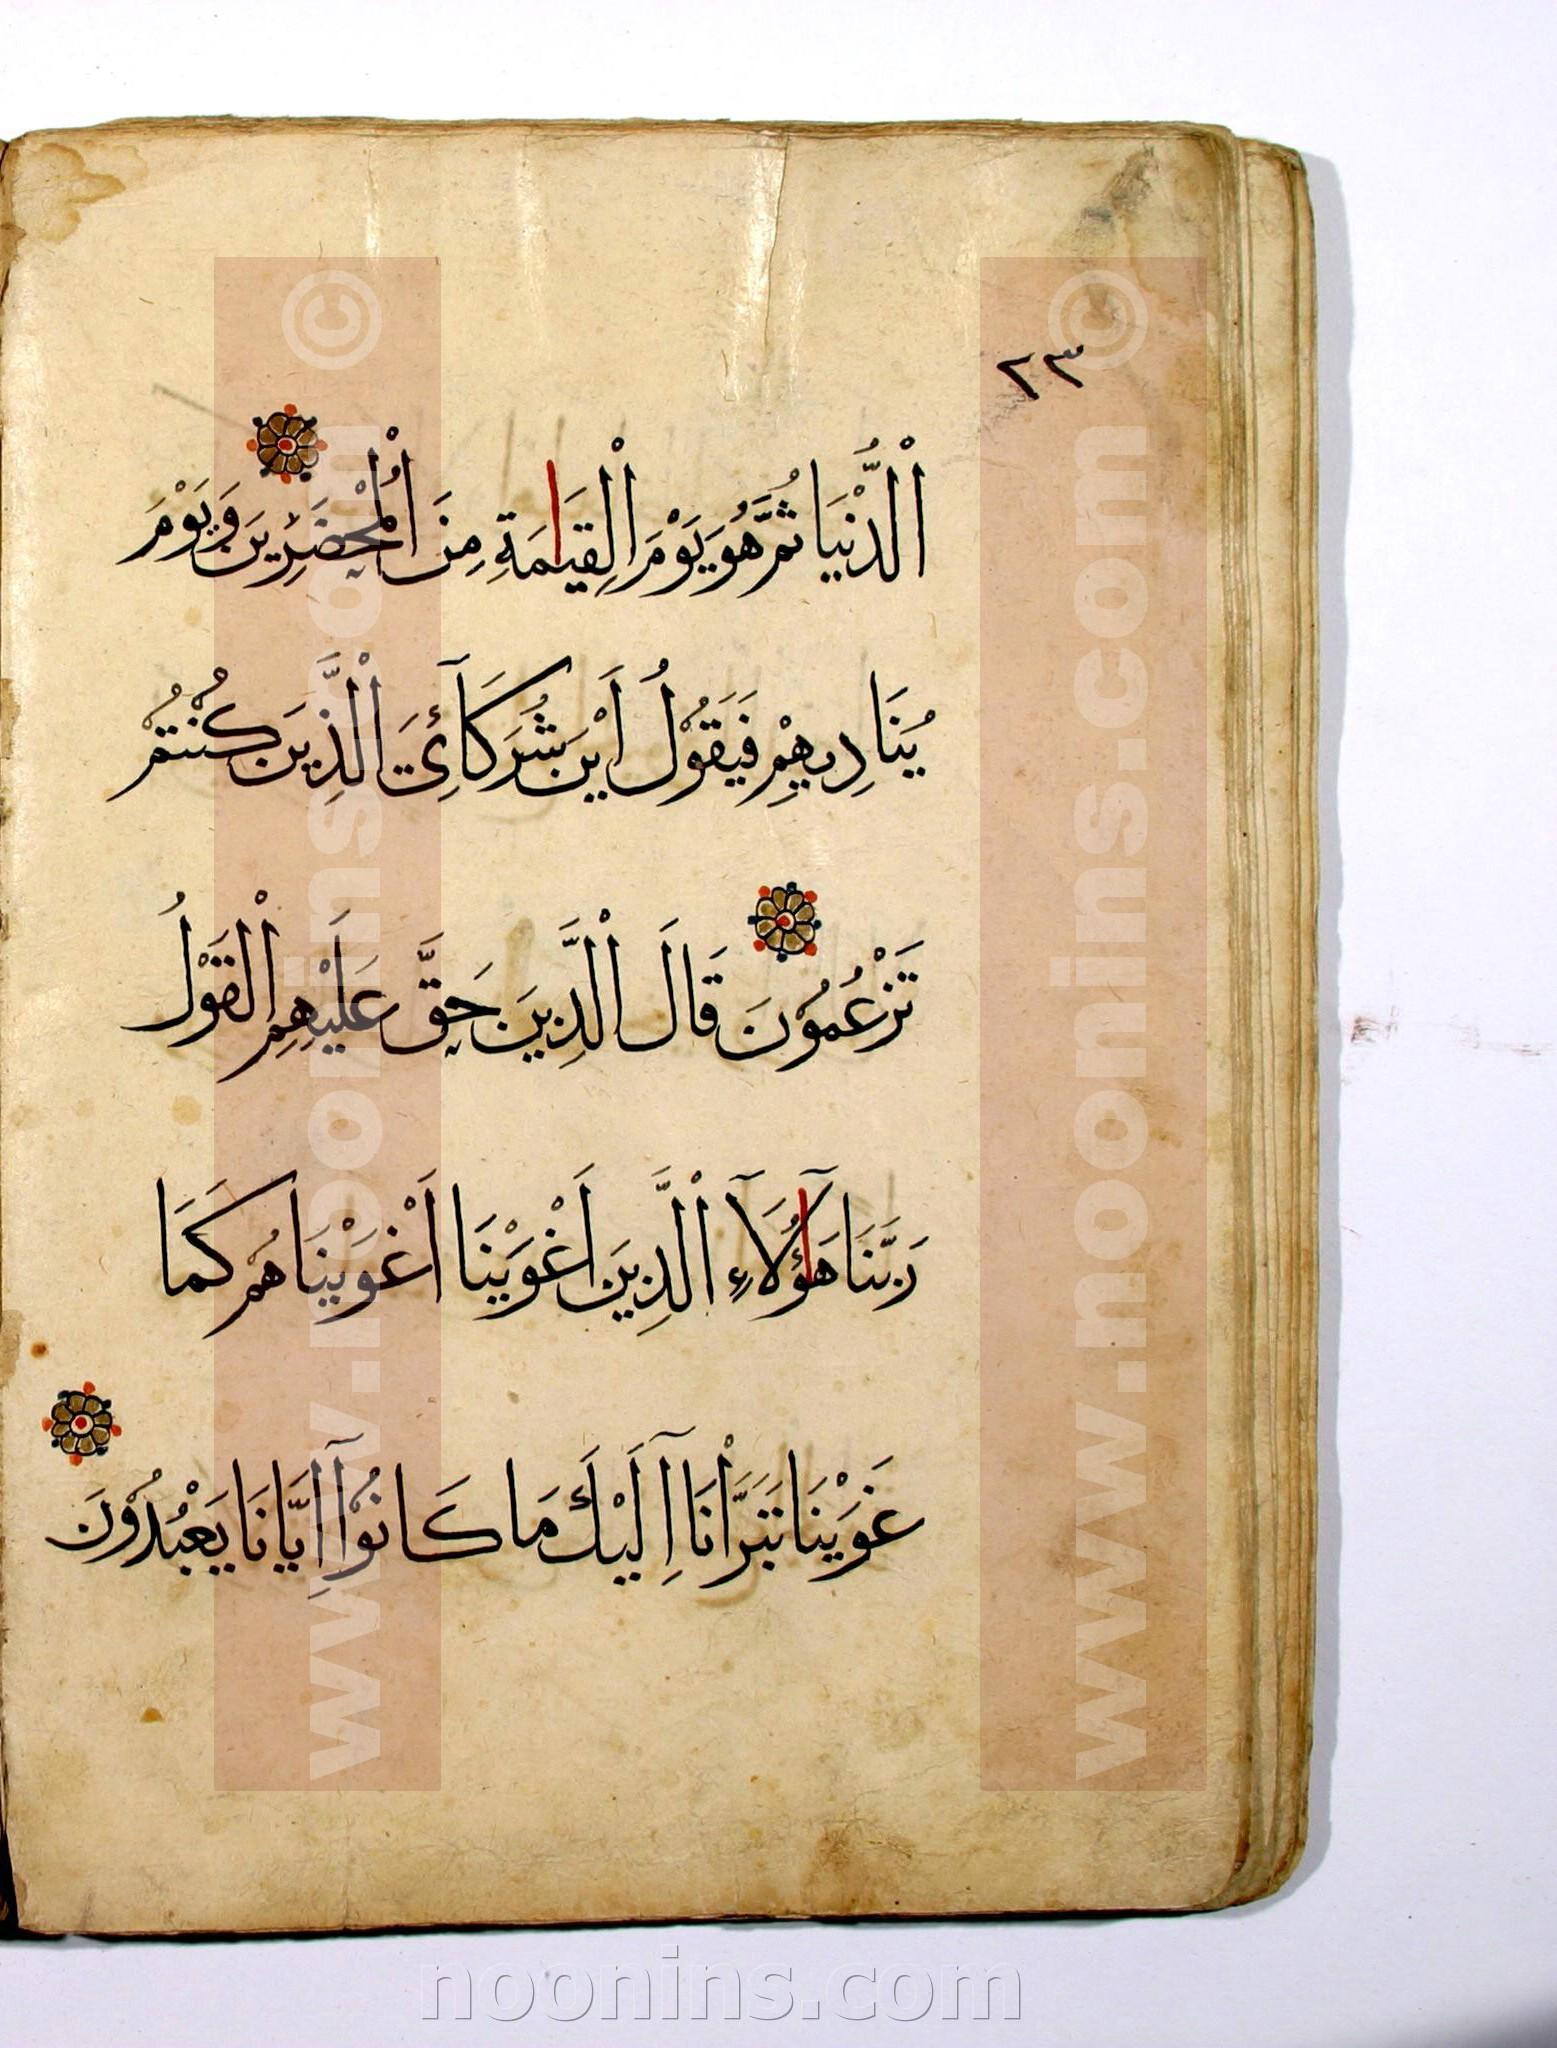 ٢٣
اْلدُّنْيَا ثُمَّ هُوَ يَوْمَ اْلقِيَامَةِ مِنَ اْلمُحْضَرِينَ وَيَوْمَ
يُنَادِيهِمْ فَيَقُوْلُ اَيْنَ شُرَكَآئِيَ اْلَّذِينَ كُنْتُمْ
تَزْعُمُوْنَ قَالَ اْلَّذِينَ حَقَّ عَلَيْهِمِ اْلقَوْلُ
رَبَّنَا هَاؤُلَآءِ اْلَّذِينَ اَغْوَيْنَا اَغْوَيْنَاهُمْ كَمَا
غَوَيْنَا تَبَرَّاْنَآ اِلَيْكَ مَا كَانُوْآ اِيَّانَا يَعْبُدُوْنَ
www.noonins.com ©
www.noonins.com ©
noonins.com